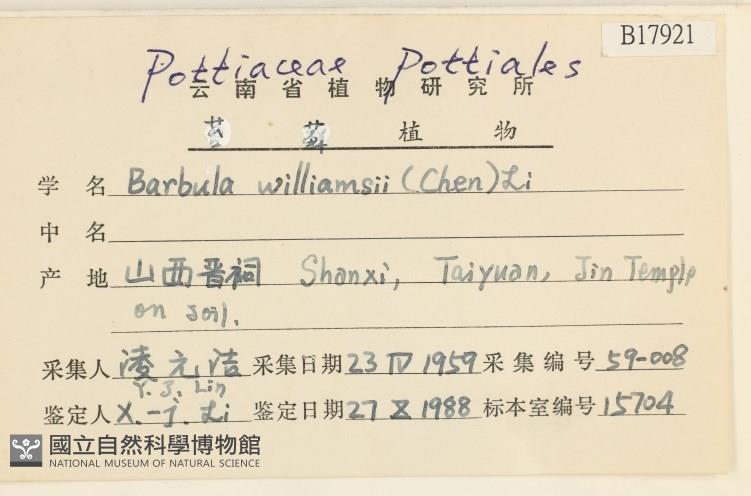 B17921
Pottiaceae Pottiales
云南省植物研究所
苔藓植物
学名 Barbula williamsii (Chen) Li
中名
产地 山西晋祠 Shanxi, Taiyuan, Jin Temple
on soil.
采集人 凌元洁 采集日期 23 IV 1959 采集编号 59-008
Y. J. Lin
鉴定人 X.-J. Li 鉴定日期 27 X 1988 标本室编号 15704
國立自然科學博物館
NATIONAL MUSEUM OF NATURAL SCIENCE